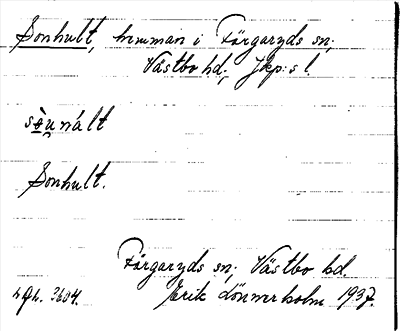 Sonhult, hemman i Färgaryds sn;
Västbo hd; Jkp:s l.
Sonhult.
Färgaryds sn; Västbo hd
Erik Lönnerholm 1937.